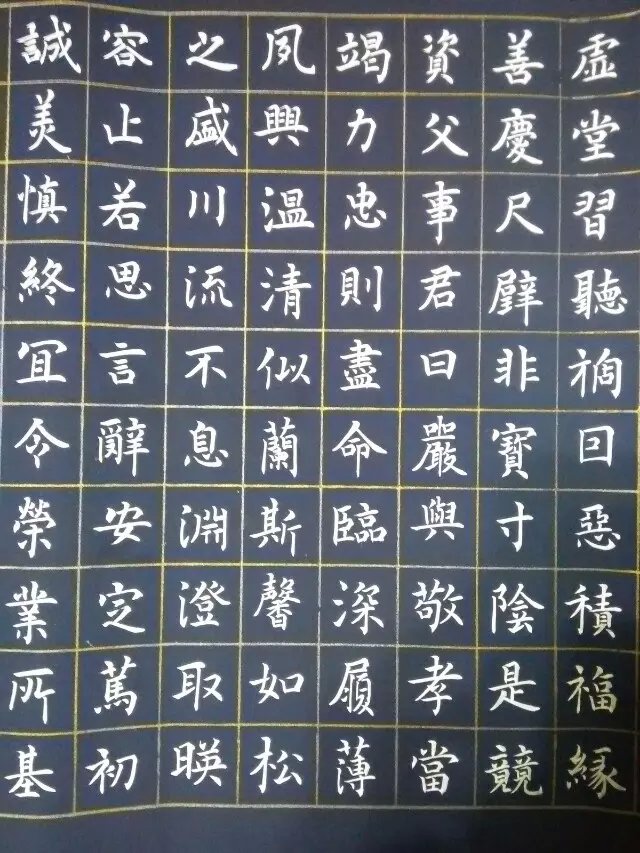 虛堂習聽禍回惡積福緣
善慶尺璧非寶寸陰是競
資父事君曰嚴與敬孝當
竭力忠則盡命臨深履薄
夙興温清似蘭斯馨如松
之盛川流不息淵澄取暎
容止若思言辭安定篤初
誠美慎終宜令榮業所基